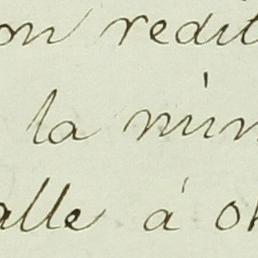 on redit
la min
alle à ob